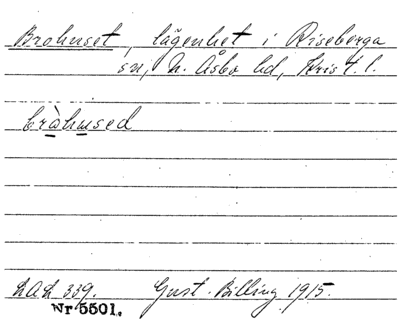 Brohuset, lägenhet i Riseberga
sn, N. Åsbo hd, Krist. l.
bràhused
LAL 339. Gust. Billing 1915.
Nr 5501.